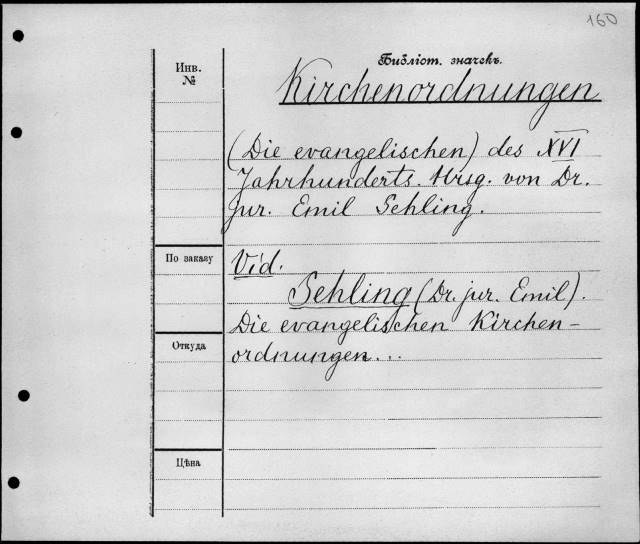 160
Библіот. значекъ.
Инв.
№
Kirchenordnungen
(Die evangelischen) des XVI
Jahrhunderts. Hrsg. von Dr.
jur. Emil Sehling.
По заказу
Vid.
Sehling (Dr. jur. Emil).
Die evangelischen Kirchen-
Откуда
ordnungen...
Цѣна